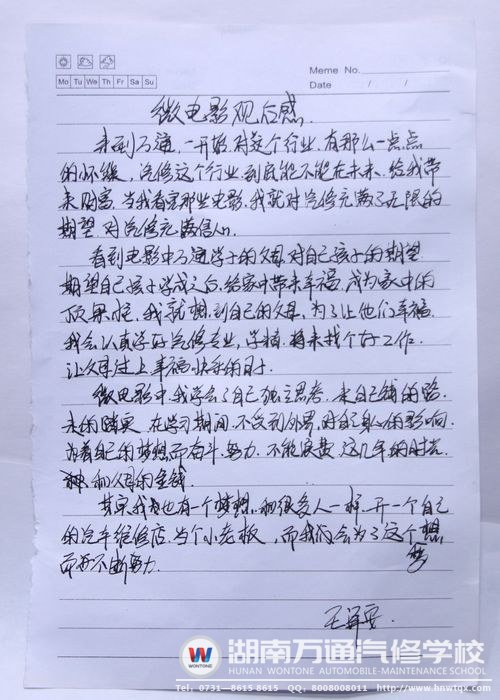 Meme No.
Mo Tu We Th Fr Sa Su
Date / /
微电影观后感
来到万通,一开始对这个行业,有那么一点点
的怀疑,汽修这个行业,到底能不能在未来,给我带
来财富,当我看完那些电影,我就对汽修充满了无限的
期望,对汽修充满信心。
看到电影中万通学子的父母,对自己孩子的期望
期望自己孩子学成之后,给家中带来幸福,成为家中的
顶梁柱。我就想到自己的父母,为了让他们幸福.
我会认真学好汽修专业,学精.将来找个好工作.
让父母过上幸福.快乐的日子.
微电影中我学会了自己独立思考.走自己的路
走的踏实.在学习期间.不受到外界,对自己身心的影响.
为着自己的梦想而奋斗.努力.不能浪费.这几年的时光.
和父母的金钱
其实我也有一个梦想.和很多人一样.开一个自己
的汽车维修店.当个小老板,而我们会为了这个梦想
而再不断努力.
王
WONTONE
湖南万通汽修学校
HUNAN WONTONE AUTOMOBILE-MAINTENANCE SCHOOL
Tel:0731—8615 8615 QQ:8008008011 http://www.hnwtqx.com